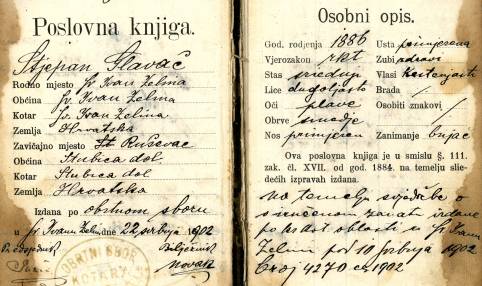 Poslovna knjiga.
Stjepan Slavač
Rodno mjesto Sv Ivan Zelina
Općina Sv. Ivan Zelina
Kotar Sv. Ivan Zelina
Zemlja Hrvatska
Zavičajno mjesto St Ruševac
Općina Stubica dol.
Kotar Stubica dol
Zemlja Hrvatska
Izdana po obrtnom sboru
u Sv. Ivanu Zelini dne 22 srpnja 1902
Predsjednik Bilježnik
Novak
OBRTNI SBOR
KOTARA
Osobni opis.
God. rodjenja 1886
Vjerozakon rkt
Stas srednji
Lice dugoljasto
Oči plave
Obrve smedje
Nos primjeren
Usta primjerena
Zubi zdravi
Vlasi kestenjasti
Brada /
Osobiti znakovi /
Zanimanje brijač
Ova poslovna knjiga je u smislu §. 111.
zak. čl. XVII. od god. 1884. na temelju slie-
dećih izpravah izdana.
Na temelju svjedočbe o
izučenom zanatu izdane
po kot oblasti u Sv Ivanu
Zelini pod 10 srpnja 1902
broj 4270 ex 1902